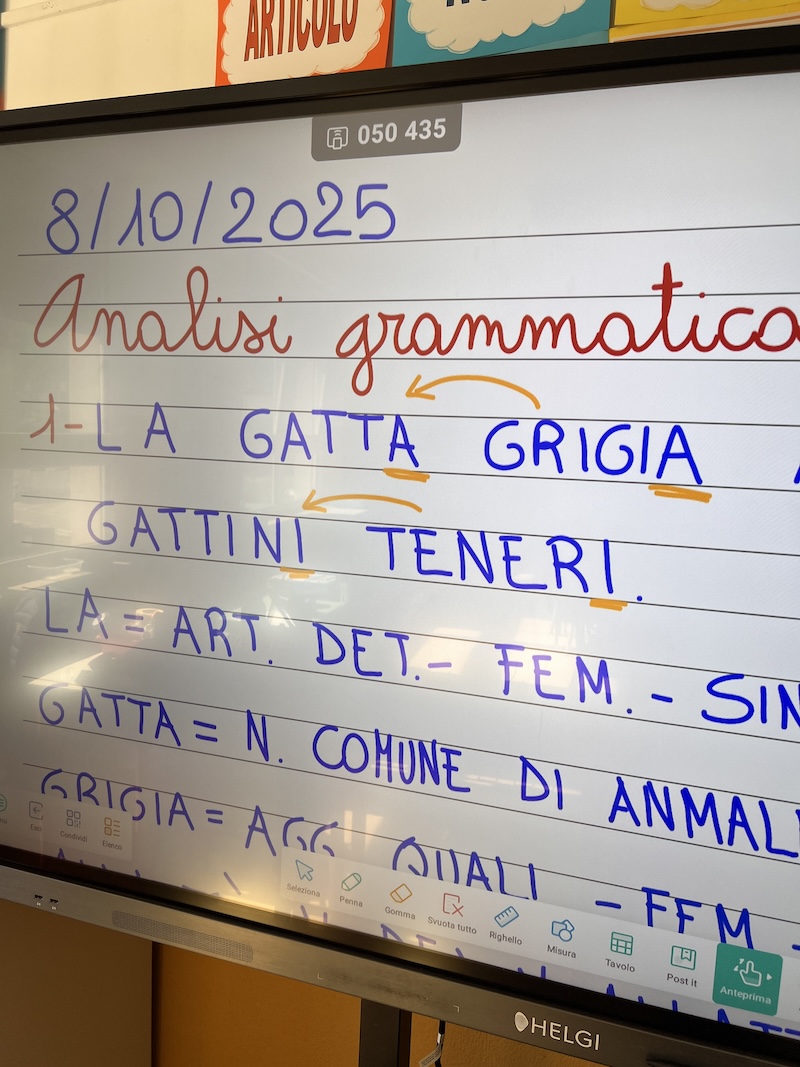 ARTICOLO
050 435
8/10/2025
Analisi grammatica
1-LA GATTA GRIGIA
GATTINI TENERI.
LA = ART. DET.- FEM. - SIN
GATTA = N. COMUNE DI ANMAL
GRIGIA = AGG QUALI - FEM -
Condividi Elenco
Seleziona Penna Gomma Svuota tutto Righello Misura Tavolo Post it Anteprima
HELGI